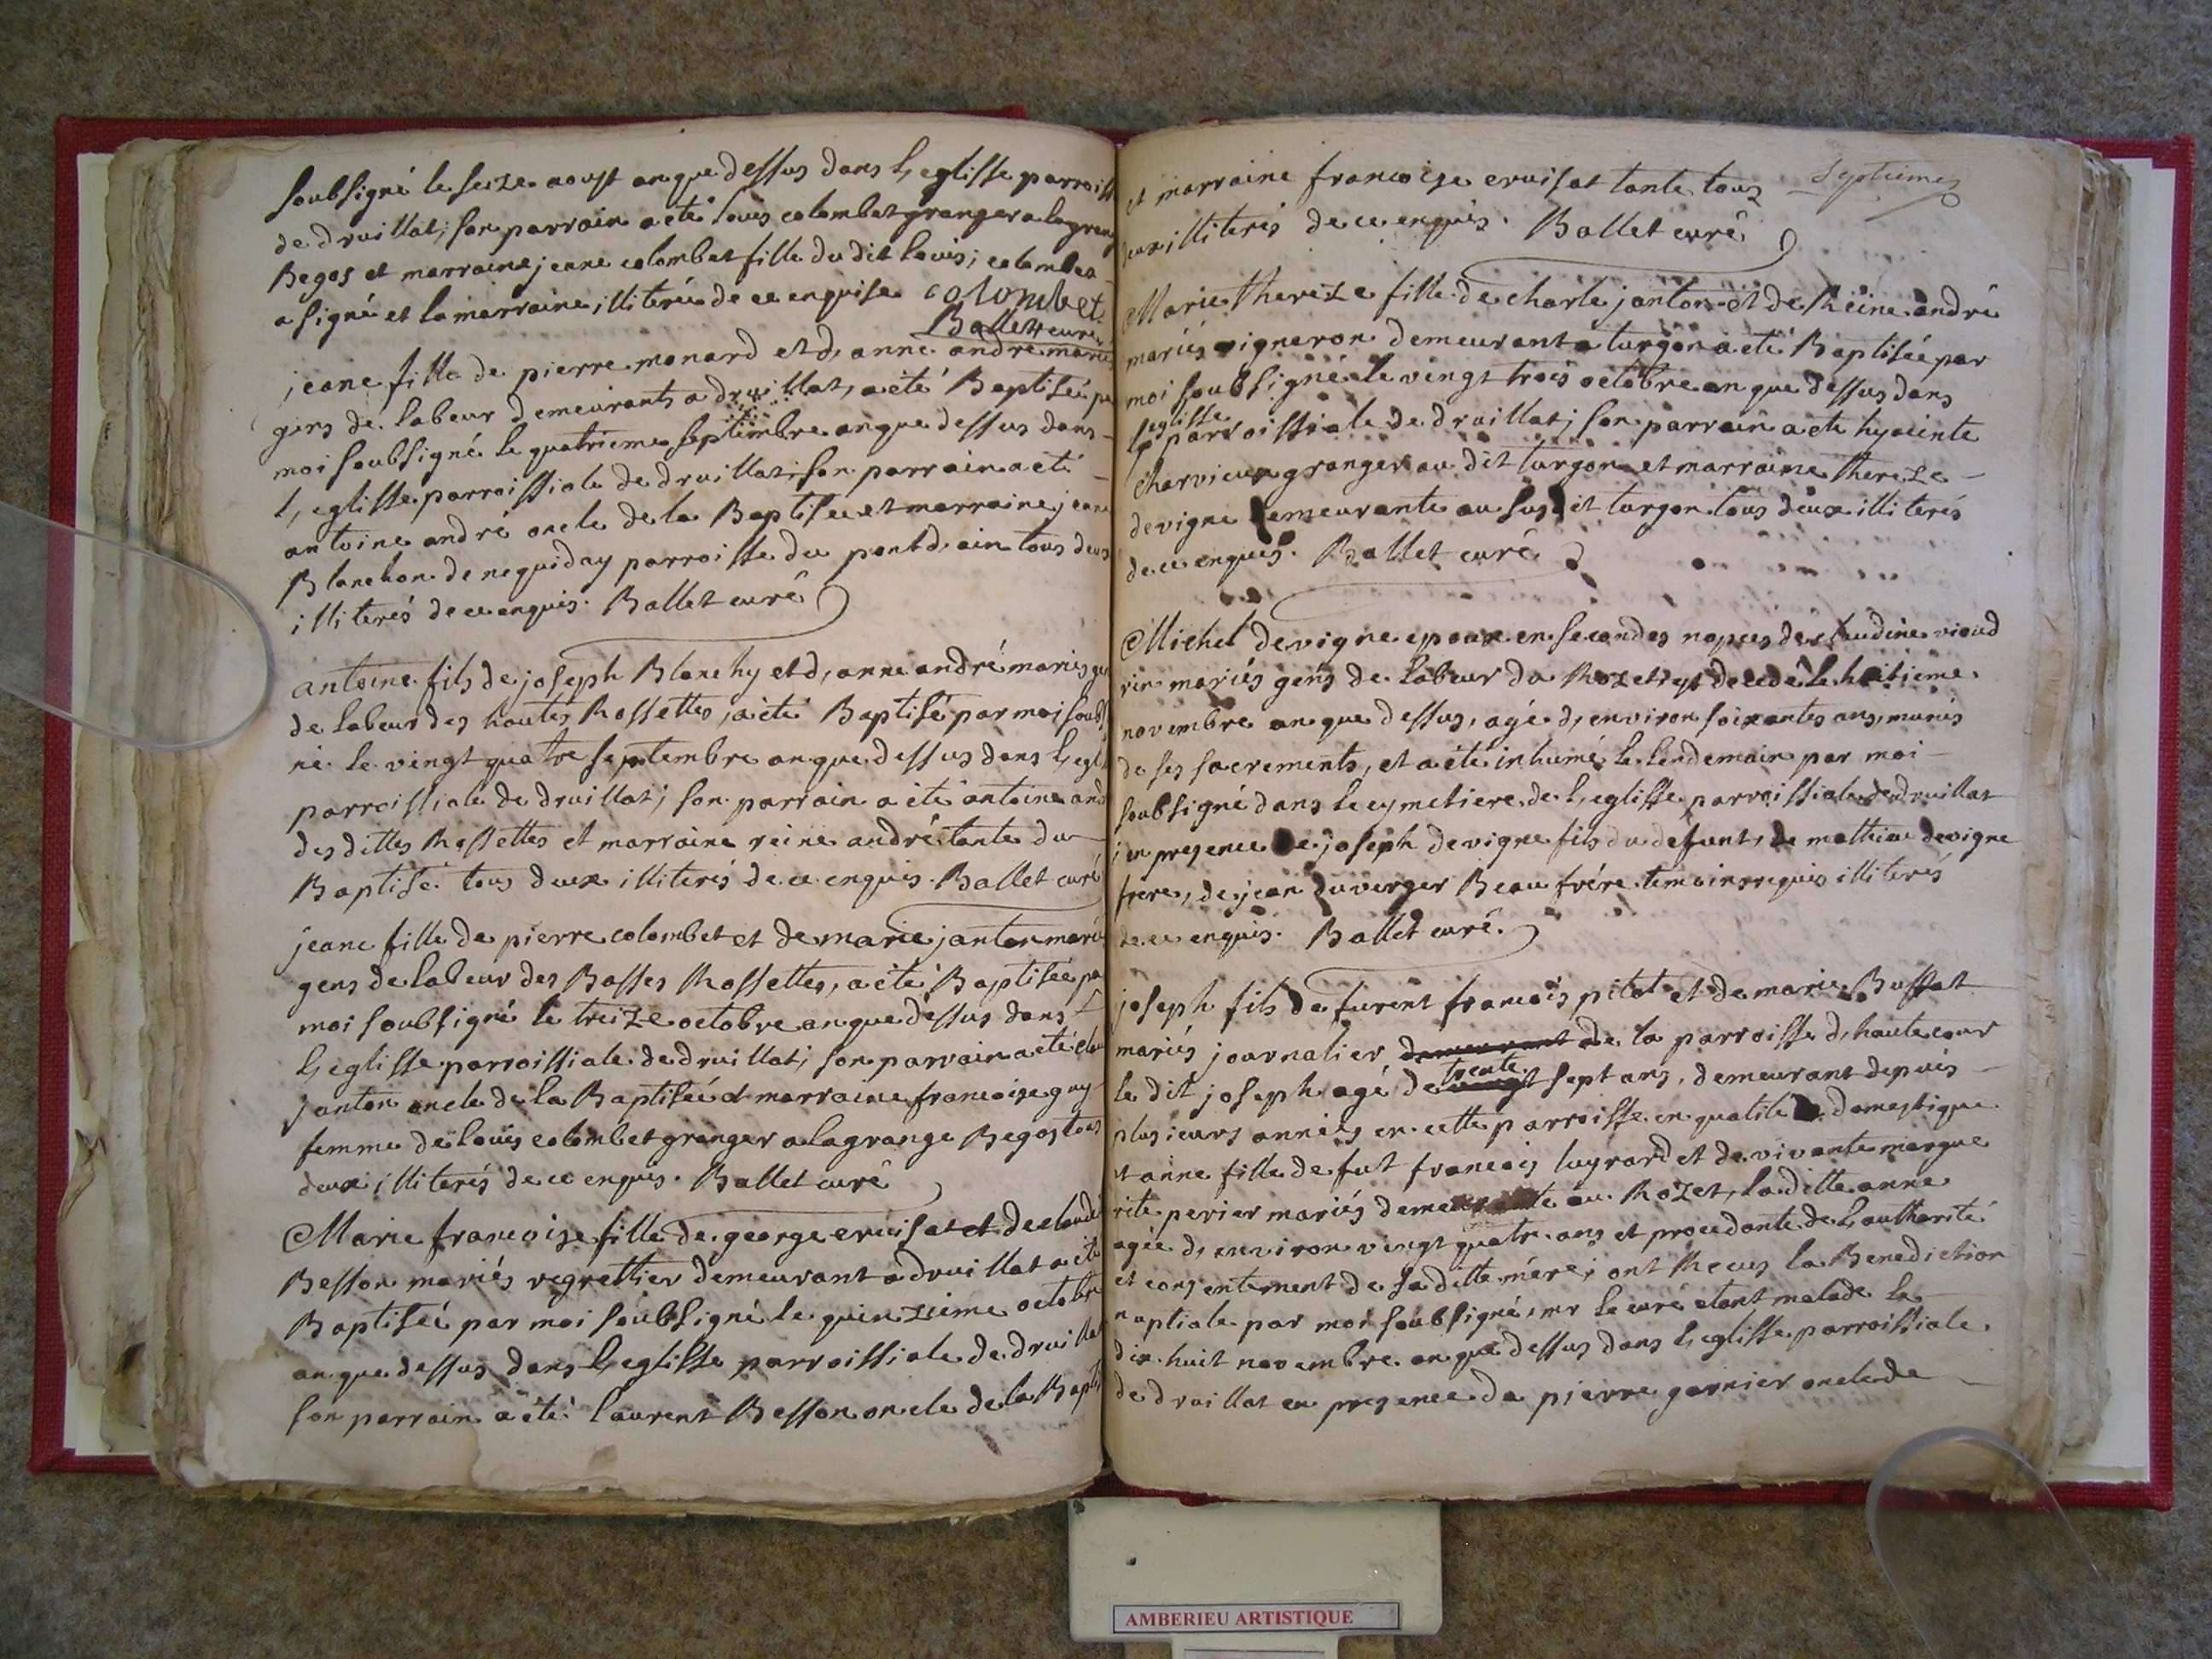 soubsigné le seize aoust an que dessus dans l,eglisse parroiss
de druillat; son parrain a eté louis colombet granger a lagrang
Begos et marraine jeane colombet fille du dit louis; colombet
a signé et la marraine illiterée de ce enquise colombet
Ballet curé
jeane fille de pierre monard et d,anne andre mariés
gens de labeur demeurants a druillat, a eté Baptisée pa
moi soubsigné le quatrieme septembre an que dessus dans
l,eglisse parroissiale de druillat; son parrain a eté
antoine andré oncle de la Baptisee et marraine jeane
Blanchon de neguiday parroisse du pont d,ain tous deux
illiterés de ce enquis. Ballet curé
antoine fils de joseph Blanchy et d,anne andré mariés gen
de labeur des hautes Rossettes, a eté Baptisé par moi soubs
né le vingt quatre septembre an que dessus dans l,egl
parroissiale de druillat; son parrain a eté antoine and
des dittes Rossettes et marraine reine andré tante du
Baptisé tous deux illiterés de ce enquis. Ballet curé
jeane fille de pierre colombet et de marie janton marié
gens de labeur des Basses Rossettes, a eté Baptisée pa
moi soubsigné le treize octobre an que dessus dans
l,eglisse parroissiale de druillat; son parrain a eté clau
janton oncle de la Baptisée et marraine francoise guy
femme de louis colombet granger a lagrange Begos tous
deux illiterés de ce enquis. Ballet curé
Marie francoise fille de george cruisat et de claudi
Besson mariés regrettier demeurant a druillat a eté
Baptisée par moi soubsigné le quinzieme octobre
an que dessus dans l,eglisse parroissiale de druillat
son parrain a eté laurent Besson oncle de la Bapti
et marraine francoise cruisat tante tous
deux illiterés de ce enquis. Ballet curé
septieme
Marie thereze fille de charle janton et de Reine andré
mariés vigneron demeurant a turgon a eté Baptisée par
moi soubsigné le vingt trois octobre an que dessus dans
l'eglisse
parroissiale de druillat; son parrain a eté hyacinte
charvieux granger au dit turgon et marraine thereze
devigne demeurante au susdit turgon tous deux illiterés
de ce enquis. Ballet curé
Michel devigne epoux en secondes nopces de claudine viond
rin mariés gens de labeur du Rozet, est decedé le huitieme
novembre an que dessus, agé d,environ soixantes ans, munis
de ses sacrements, et a eté inhumé le lendemain par moi
soubsigné dans le cymetiere de l,eglisse parroissiale de druillat
en presence de joseph devigne fils du defunt, de mathieu devigne
frere, de jean duverger Beau frére temoins requis illiterés
de ce enquis. Ballet curé.
joseph fils de furent francois pitot et de marie Bussat
mariés journalier demeurant de la parroisse d,hautecour
trente
le dit joseph agé de vingt sept ans, demeurant depuis
plusieurs années en cette parroisse en qualité de domestique
et anne fille de fut francois lugrard et de vivante margue
rite perier mariés demeurante au Rozet, laditte anne
agée d,environ vingt quatre ans et procedante de l,authorité
et consentement de sa ditte mére; ont Recus la Benediction
nuptiale par moi soubsigné, mr le curé etant malade le
dix huit novembre an que dessus dans l,eglisse parroissiale
de druillat en presence de pierre garnier oncle de
AMBERIEU ARTISTIQUE